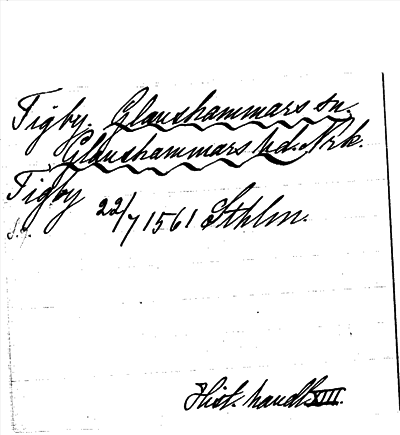 Tigby. Glanshammars sn.
Glanshammars hd. Nrk.
Tigby
22/7 1561 Sthlm.
Hist. handl. XIII.